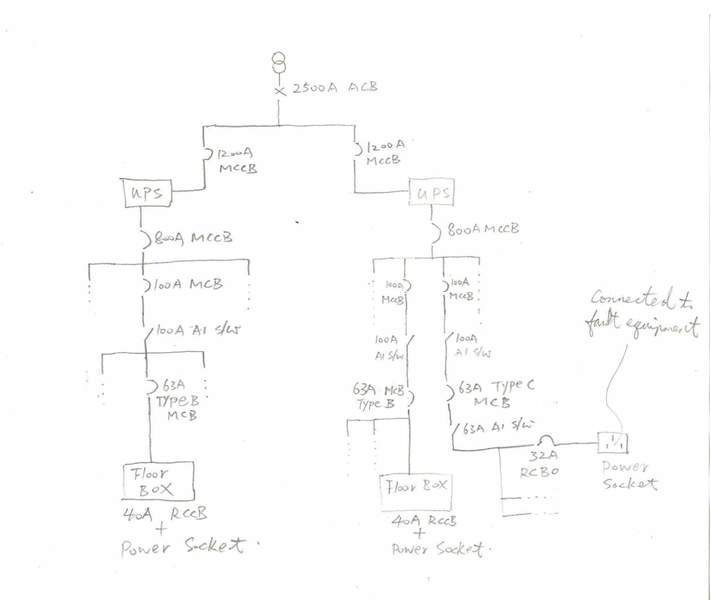 2500A ACB
1200A
MCCB
1200A
MCCB
UPS
UPS
800A MCCB
800A MCCB
100A MCB
100A
MCCB
100A
MCCB
Connected to
fault equipment
100A AI S/W
100A
AI S/W
100A
AI S/W
63A
TYPE B
MCB
63A MCB
TYPE B
63A TYPE C
MCB
63A AI S/W
32A
RCBO
Power
Socket
Floor
BOX
Floor BOX
40A RCCB
+
Power Socket.
40A RCCB
+
Power Socket.